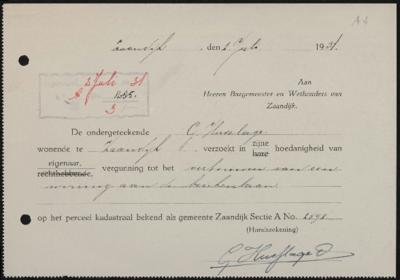 Zaandijk, den 2 Juli 1931.
Aan
Heeren Burgemeester en Wethouders van
Zaandijk.
2 Juli 31
3
De ondergeteekende G Huslage
wonende te Zaandijk, verzoekt in zijne hoedanigheid van
hare
eigenaar,
rechthebbende, vergunning tot het verbouwen van een
woning aan de
op het perceel kadastraal bekend als gemeente Zaandijk Sectie A No.
(Handteekening)